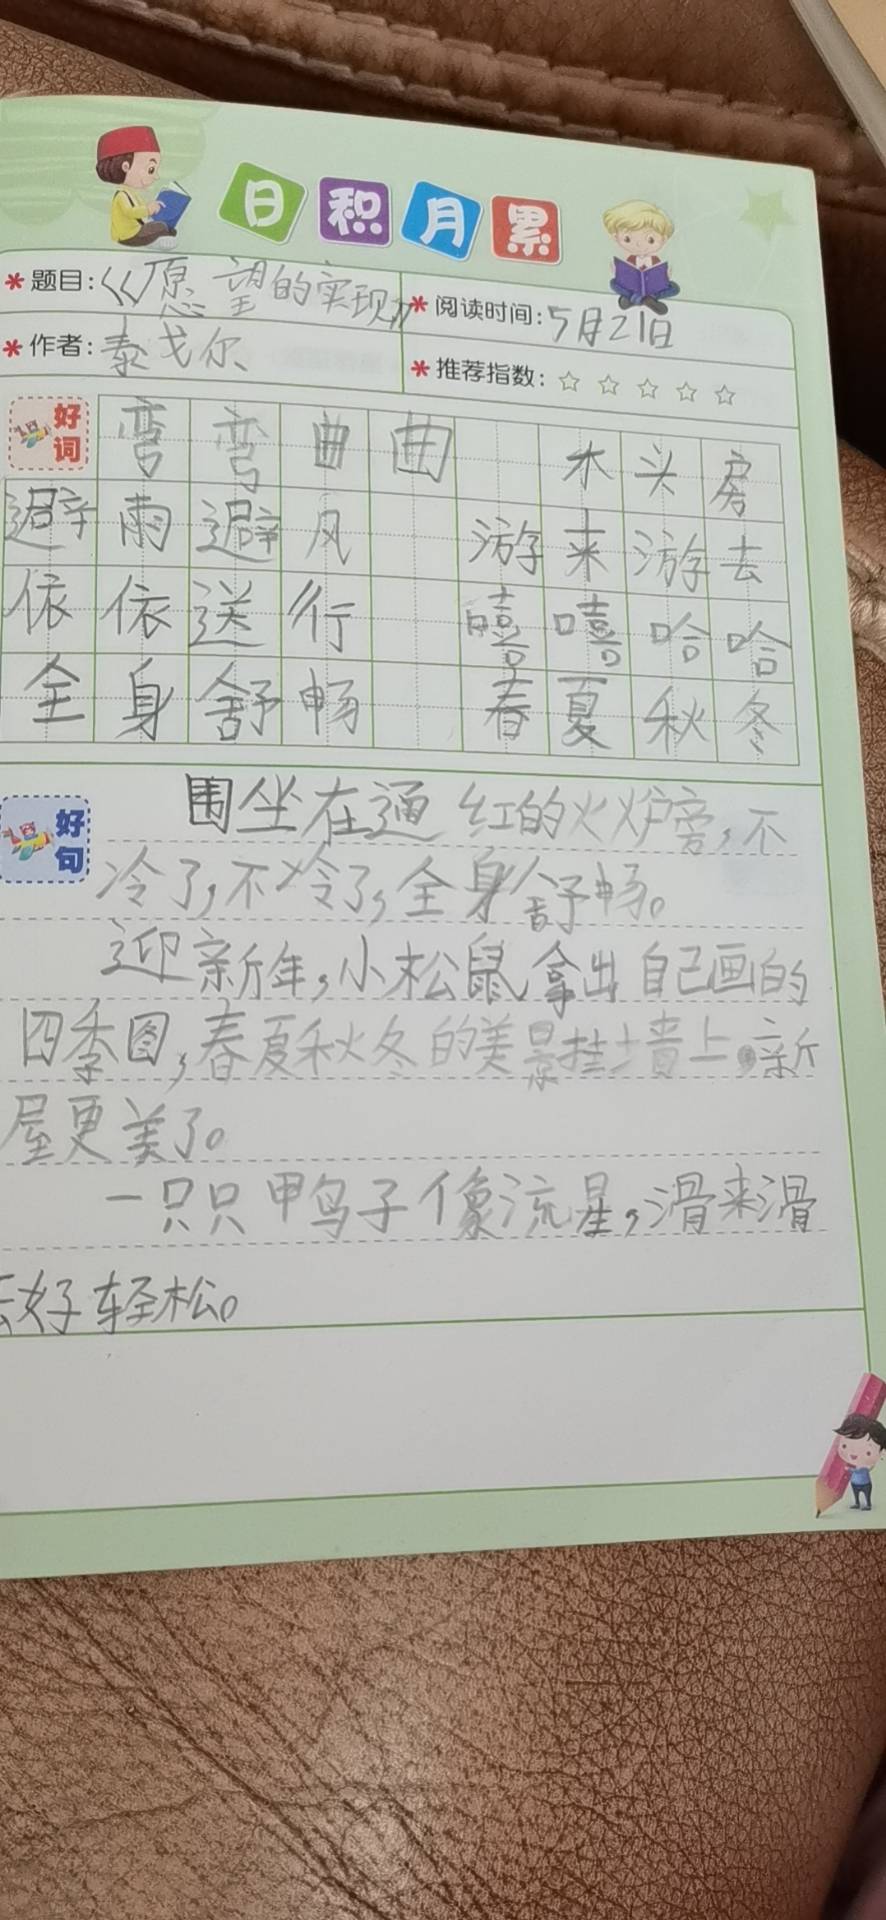 日积月累
题目:《愿望的实现》 阅读时间:5月21日
作者:泰戈尔 推荐指数:☆☆☆☆☆
好词 弯弯曲曲 木头房
避雨避风 游来游去
依依送行 嘻嘻哈哈
全身舒畅 春夏秋冬
好句 围坐在通红的火炉旁,不
冷了,不冷了,全身舒畅。
迎新年,小松鼠拿出自己画的
四季图,春夏秋冬的美景挂墙上。新
屋更美了。
一只只鸭子像流星,滑来滑
去好轻松。